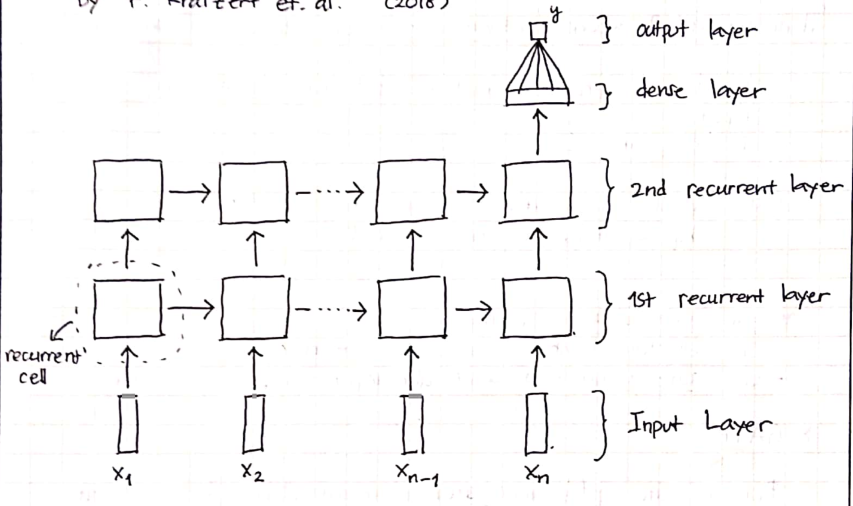 by F. Kratzert et. al. (2018)
y
output layer
dense layer
2nd recurrent layer
1st recurrent layer
recurrent
cell
Input Layer
x1
x2
xn-1
xn